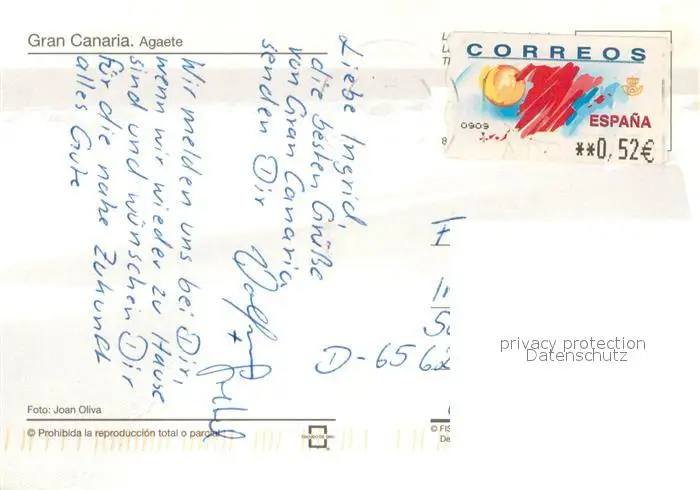 Gran Canaria. Agaete
Liebe Ingrid,
die besten Grüße
von Gran Canaria
senden Dir
Wir melden uns bei Dir,
wenn wir wieder zu Hause
sind und wünschen Dir
für die nahe Zukunft
alles Gute
CORREOS
ESPAÑA
0909
**0,52€
D-6562
privacy protection
Datenschutz
Foto: Joan Oliva
© Prohibida la reproducción total o parcial
© FIS
De